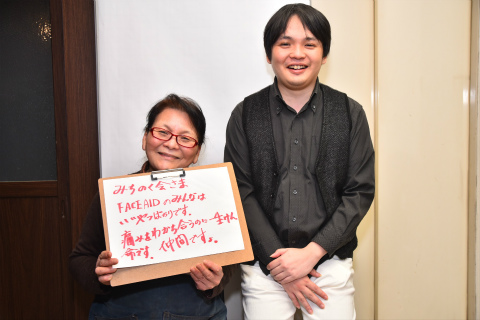 みちのく会さま
FACEAIDのみんなは
いいやつばかりです。
痛みをわかち合うのに一生けん
命です。仲間です。